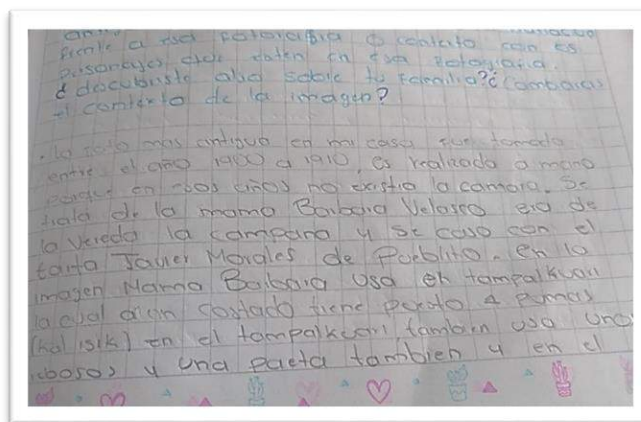 frente a esa fotografia o contexto con es
personajes que esten en esa fotografia.
¿ descubriste algo sobre tu familia? ¿ Cambiarias
el contexto de la imagen?
. la foto mas antigua en mi casa fue tomada
entre el año 1900 a 1910, es realizada a mano
porque en esos años no existia la camara. Se
trata de la mama Barbara Velasco era de
la Vereda la campana y se caso con el
taita Javier Morales de Pueblito. en la
imagen Mama Barbara usa el tampalkuari
la cual de un costado tiene 4 Pumas
(kal isik) en el tampalkuari tambien usa uno
rebosos y una tambien y en el